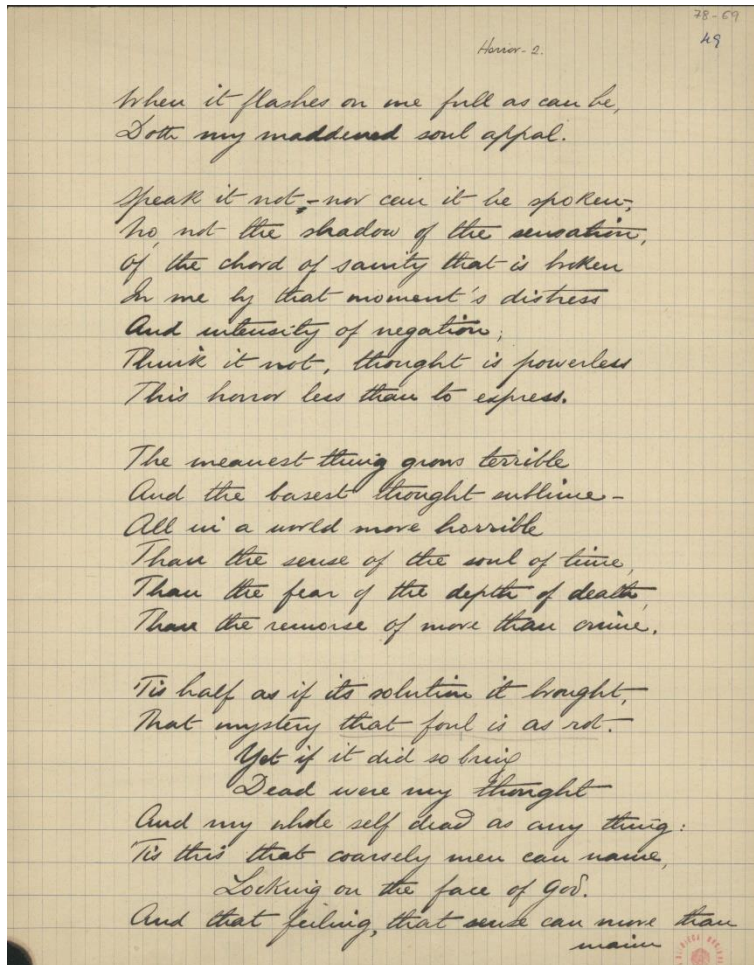 78-69
49
Horror - 2.
When it flashes on me full as can be,
Doth my maddened soul appal.
Speak it not, - nor can it be spoken;
No, not the shadow of the sensation,
Of the chord of sanity that is broken
In me by that moment's distress
And intensity of negation;
Think it not, thought is powerless
This horror less than to express.
The meanest thing grows terrible
And the basest thought sublime -
All in a world more horrible
Than the sense of the soul of time,
Than the fear of the depth of death,
Than the remorse of more than crime.
'Tis half as if its solution it brought,
That mystery that foul is as rot.
Yet if it did so bring
Dead were my thought
And my whole self dead as any thing:
'Tis this that coarsely men can name,
Looking on the face of God.
And that feeling, that sense can more than
maim